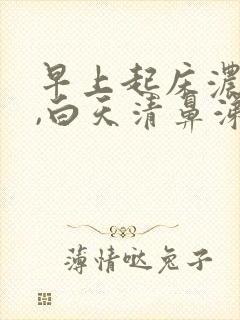 早上起床浓
,白天清鼻涕
薄情哒兔子